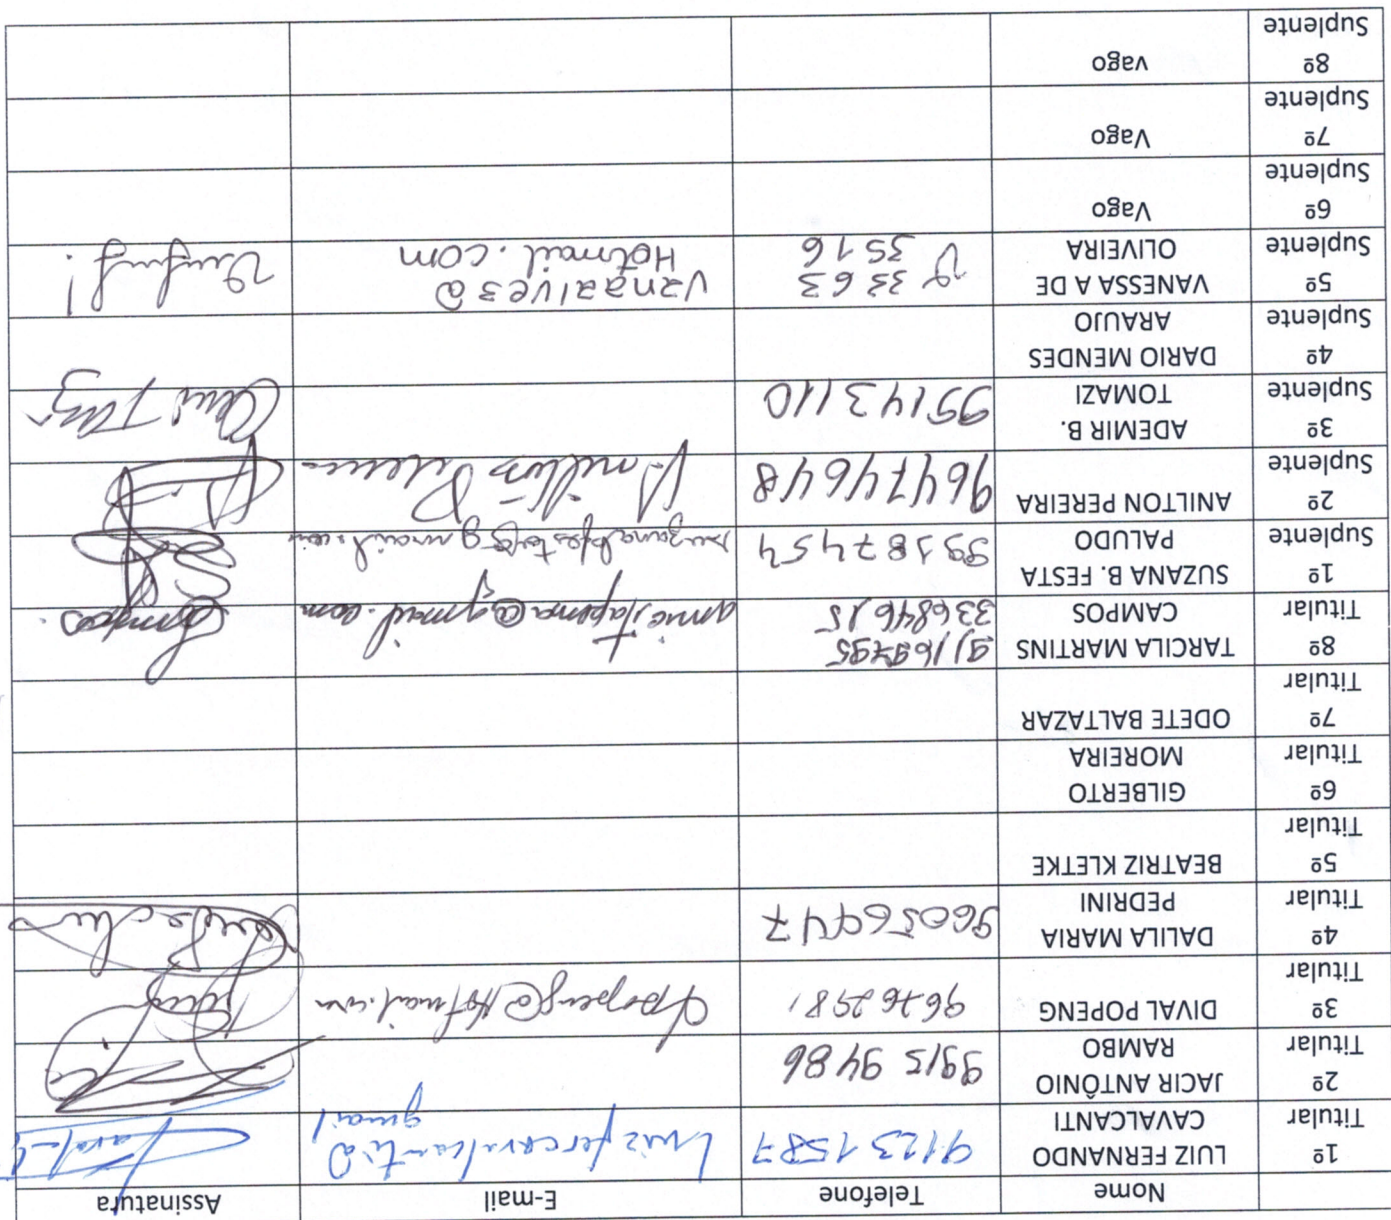 Nome Telefone E-mail Assinatura
1º Titular LUIZ FERNANDO CAVALCANTI 91231587 Luizfercavalcanti@gmail
2º Titular JACIR ANTÔNIO RAMBO 9915 9486
3º Titular DIVAL POPENG 96762981 dpopeng@hotmail.com
4º Titular DALILA MARIA PEDRINI 960569447
5º Titular BEATRIZ KLETKE
6º Titular GILBERTO MOREIRA
7º Titular ODETE BALTAZAR
8º Titular TARCILA MARTINS CAMPOS 91169795 Campos.
1º Suplente SUZANA B. FESTA PALUDO
2º Suplente ANILTON PEREIRA 96474648 Anilton Pereira
3º Suplente ADEMIR B. TOMAZI 95143110
4º Suplente DARIO MENDES ARAUJO
5º Suplente VANESSA A DE OLIVEIRA 3363 3516 vanaalves@Hotmail.com
6º Suplente Vago
7º Suplente Vago
8º Suplente vago